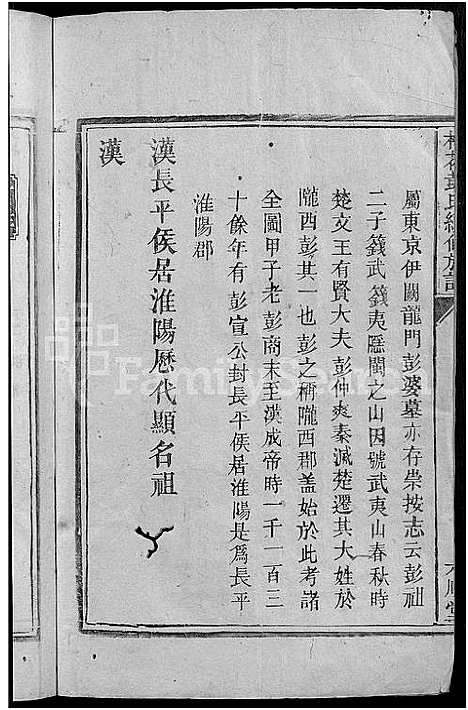 屬東京伊闕龍門彭婆墓亦存崇按志云彭祖
二子籛武籛夷匿閩之山因號武夷山春秋時
楚文王有賢大夫彭仲爽秦滅楚遷其大姓於
隴西彭其一也彭之稱隴西郡蓋始於此考諸
全圖甲子老彭商末至漢成帝時一千一百三
十餘年有彭宣公封長平侯居淮陽是為長平
淮陽郡
漢長平侯居淮陽歷代顯名祖
漢
FamilySearch